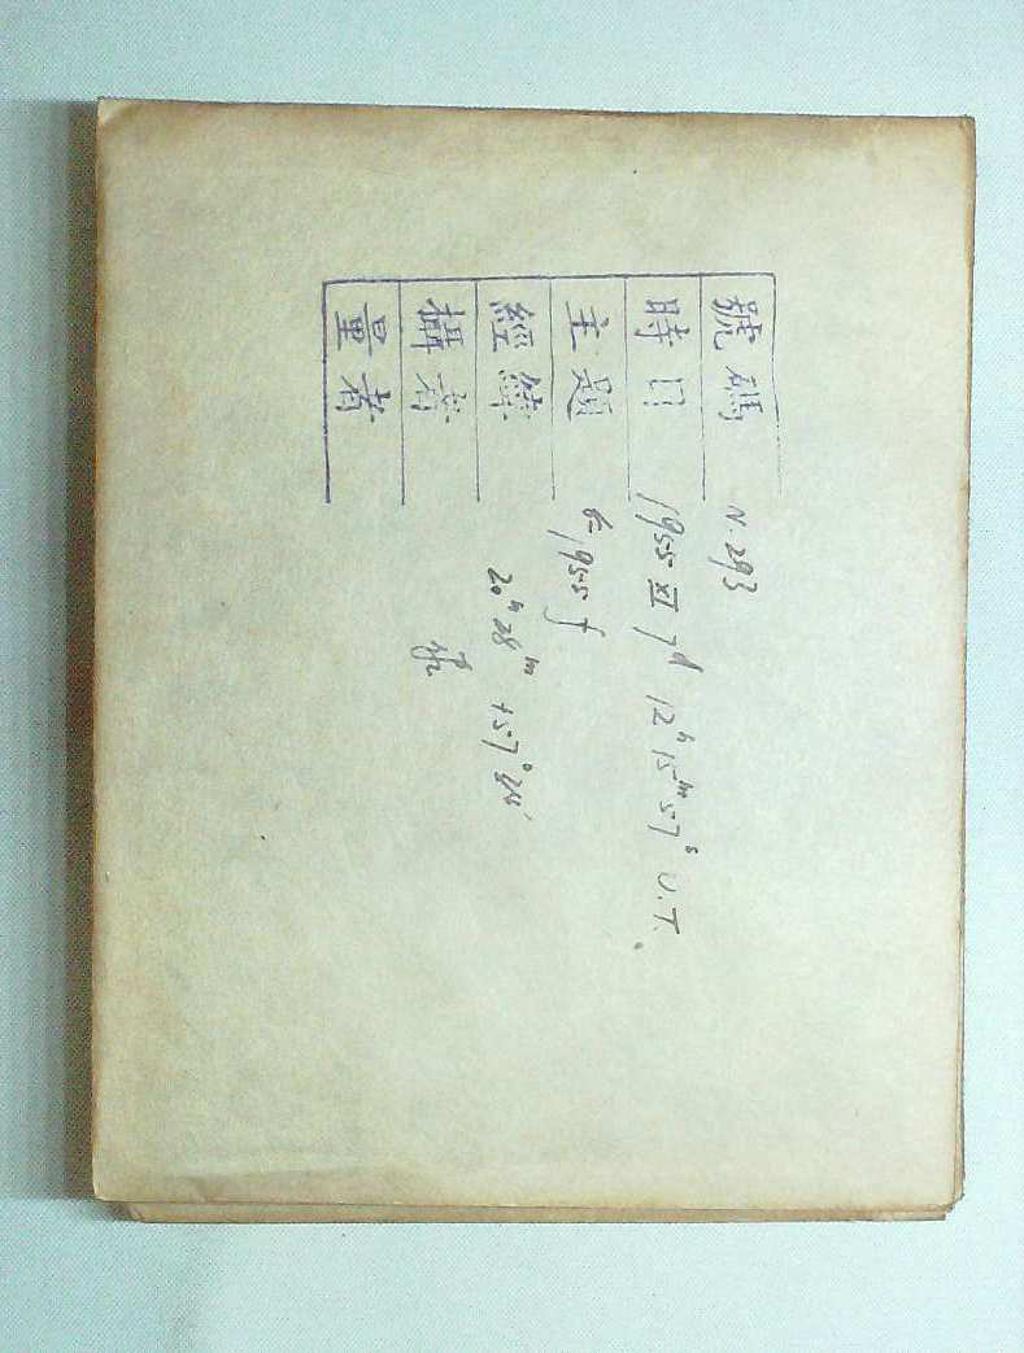 號碼 N. 293
時日 1955 XI 7d 12h 15m 57s U.T.
主題 1955 f
經緯 20h 28m +57°
攝者
量者